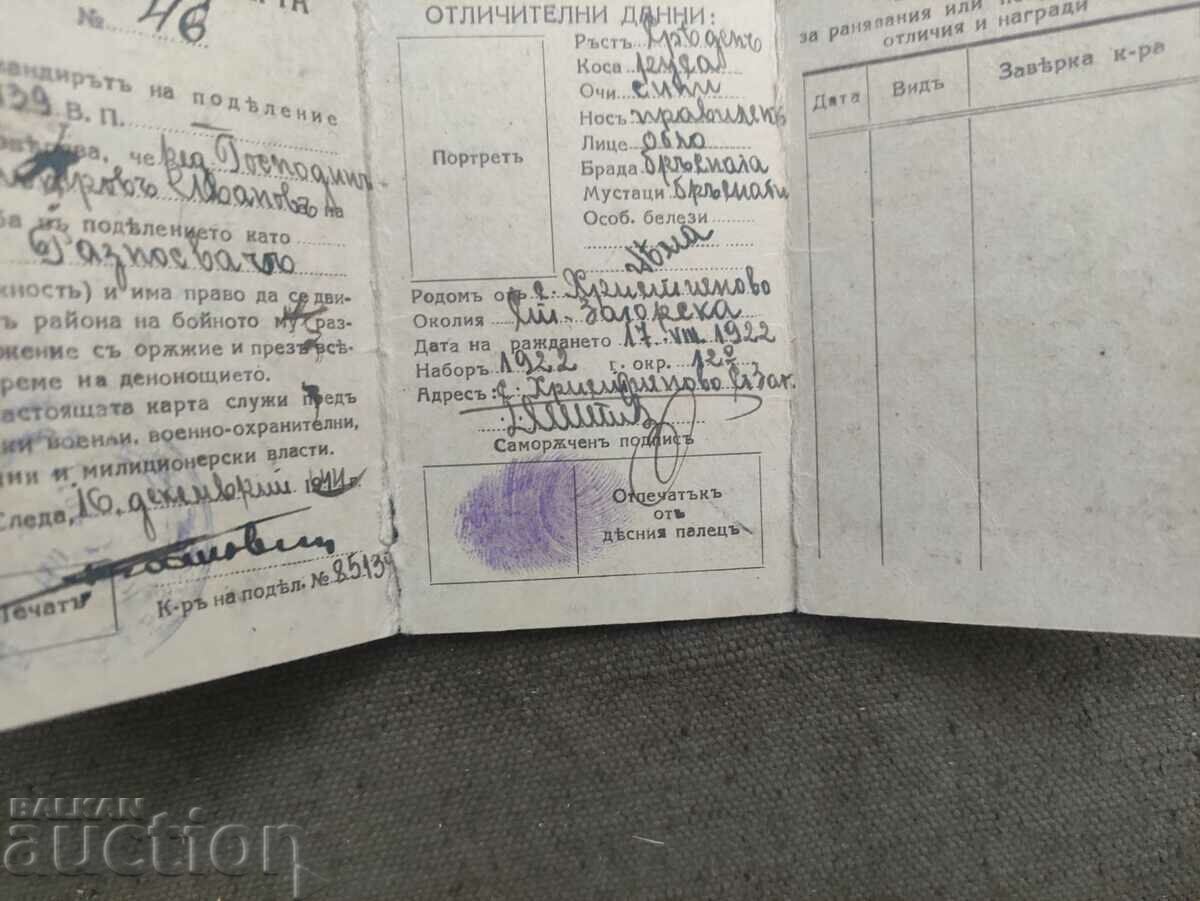 РТА
№ 46
мандирътъ на подѣление
139 В. П.
че ред. Господинъ
Ивановъ на
ба въ подѣлението като
Разносвачъ
жность) и има право да се дви-
ъ района на бойното му раз-
жение съ орѫжие и презъ всѣ-
реме на денонощието.
астоящата карта служи предъ
ки военни, военно-охранителни,
ни и милиционерски власти.
Следа, 16 декемврий 1944 г.
К-ръ на подѣл. № 85139
Печатъ
ОТЛИЧИТЕЛНИ ДАННИ:
Портретъ
Ръстъ Срѣденъ
Коса руса
Очи сини
Носъ правиленъ
Лице Обло
Брада бръсната
Мустаци бръснати
Особ. белези
Нѣма
Родомъ отъ с. Християново
Околия Ст.-Загорска
Дата на раждането 17. VIII. 1922
Наборъ 1922 г. окр. 12
Адресъ: с. Християново Ст. Заг.
Саморѫченъ подпись
Отпечатъкъ
отъ
дѣсния палецъ
за ранявания или
отличия и награди
Дата Видъ Завѣрка к-ра
BALKAN
auction